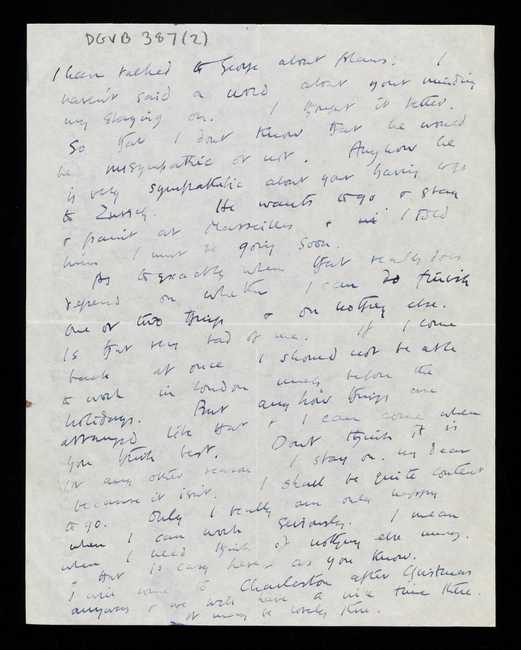 DGVB 387(2)
I have talked to George about plans. I
haven't said a word about your minding
my staying on. I thought it better.
So that I don't know that he would
be unsympathetic or not. Anyhow he
is very sympathetic about your having to go
to Zurich. He wants to go & stay
& paint at Marseilles & I told
him I must be going soon.
As to exactly when that really does
depend on whether I can finish
one or two things & on nothing else.
Is that very bad of me. If I come
back at once I should not be able
to work in London much before the
holidays. But anyhow things are
arranged like that & I can come when
you think best. Don't think it is
for any other reason I stay on my dear
because it isn't. I shall be quite content
to go. Only I really am only happy
when I can work seriously. I mean
when I need think of nothing else
& that is easy here as you know.
I will come to Charleston after Christmas
anyway & we will have a nice time there.
It may be lovely there.